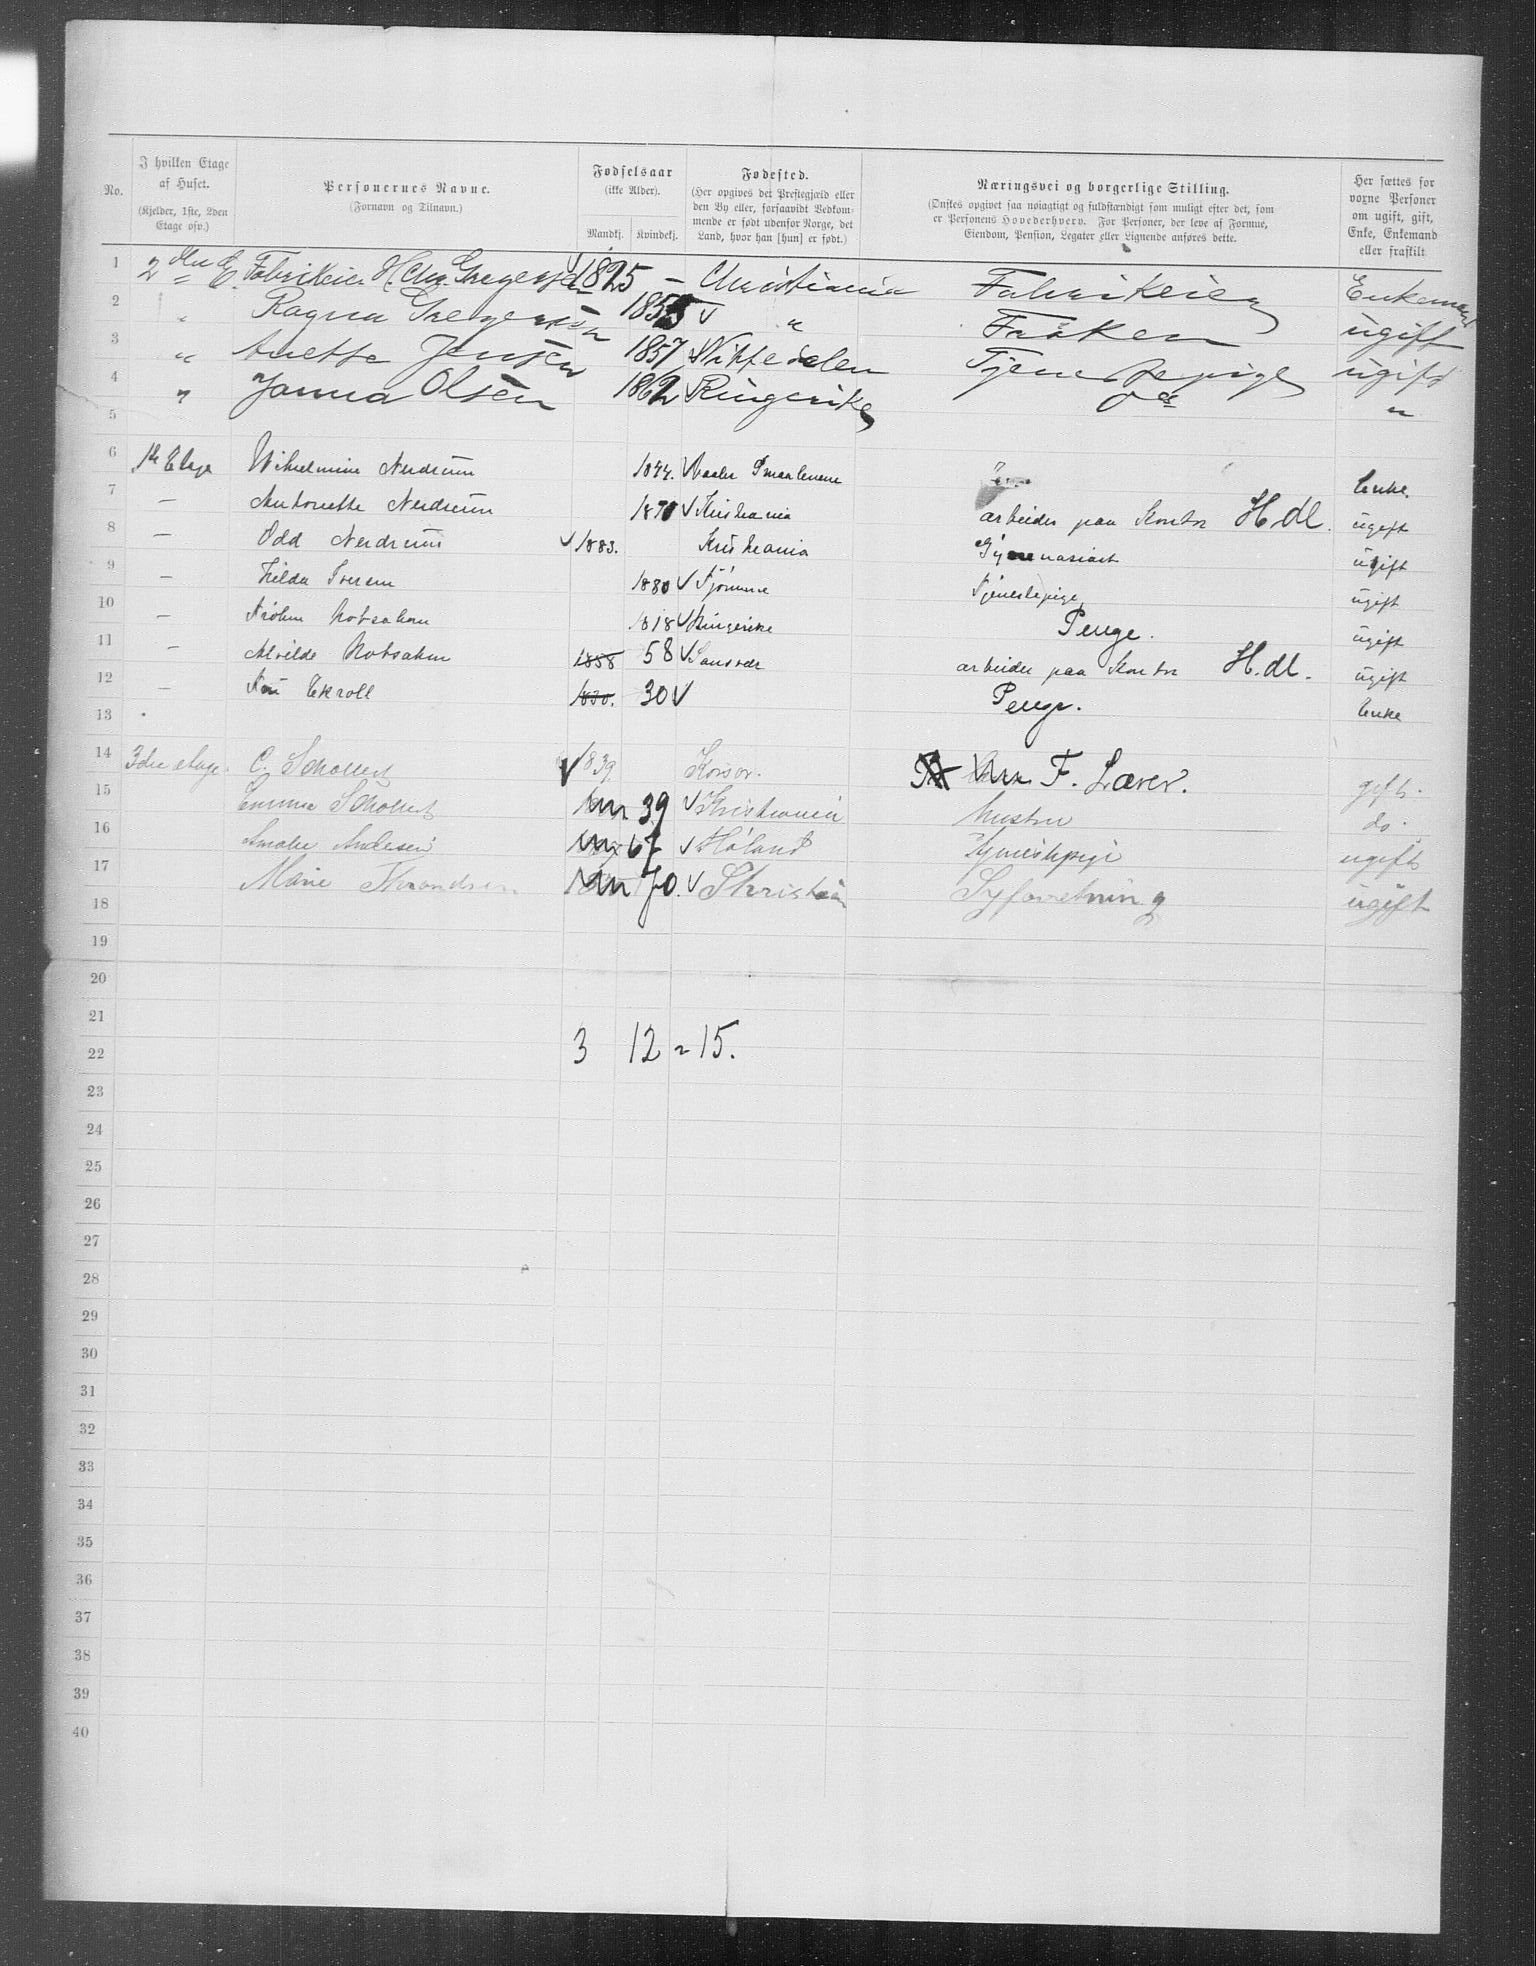 No. I hvilken Etage af Huset. (Kjelder, 1ste, 2den Etage osv.) Personernes Navne. (Fornavn og Tilnavn.) Fødselsaar (ikke Alder). Mandkj. Kvindekj. Fødested. (Her opgives det Prestegjæld eller den By eller, forsaavidt Vedkommende er født udenfor Norge, det Land, hvor han [hun] er født.) Næringsvei og borgerlige Stilling. (Ønskes opgivet saa nøiagtigt og fuldstændigt som muligt efter det, som er Personens Hovederhverv. For Personer, der leve af Formue, Eiendom, Pension, Legater eller Lignende anføres dette. Her sættes for voxne Personer om ugift, gift, Enke, Enkemand eller fraskilt
1 2den E. Fabrikeier H. Chr. Gregersen 1825 – Christiania Fabrikeier Enkemand
2 " Ragna Gregersen 1855 " Frøken ugift
3 " Anette Jensen 1857 Nittedalen Tjenestepige ugift
4 " Janna Olsen 1862 Ringerike do "
5
6 1ste Etage Wilhelmine Nerdrum 1844. Vaaler Smaalenene Enke.
7 – Antonette Nerdrum 1871 Kristiania arbeider paa Kontor H.dl. ugift
8 – Odd Nerdrum 1883. Kristiania Gymnasiast ugift
9 – Hilda Iversen 1880 Tjømme Tjenestepige ugift
10 – 1818 Ringerike Penge. ugift
11 – Alvilde 1858 58 Sansvær arbeider paa Kontor H.dl. ugift
12 – Ekroll 1830. 30 Penge. Enke
13
14 3die etage. C. 1839 Korsør. F. Lærer. gift.
15 Emma 39 Kristiania Hustru do.
16 Amalie Andersen 67 Høland Tjenestepige ugift
17 Marie 70. Kristiania Syforretning ugift
18
19
20
21
22 3 12 = 15.
23
24
25
26
27
28
29
30
31
32
33
34
35
36
37
38
39
40